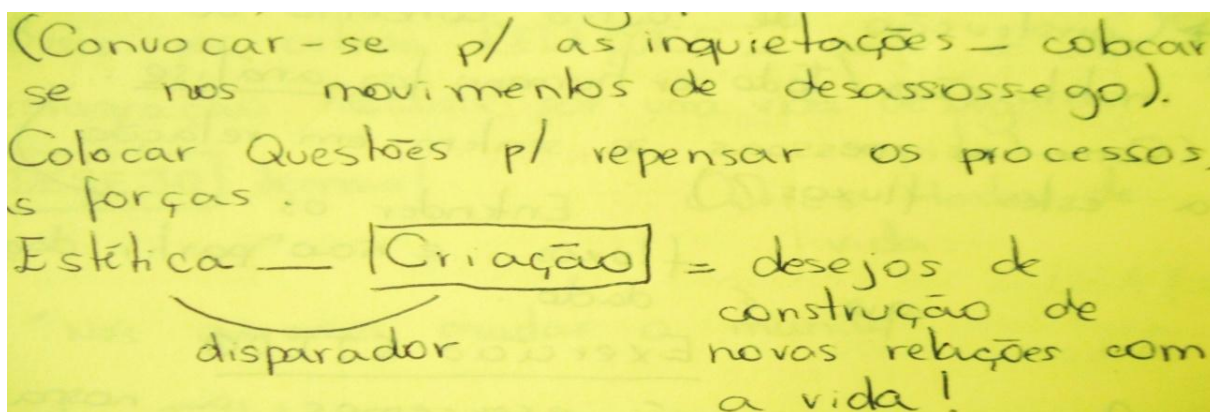 (Convocar-se p/ as inquietações - colocar
se nos movimentos de desassossego).
Colocar Questões p/ repensar os processos,
s forças.
Estética — Criação = desejos de
construção de
disparador novas relações com
a vida!